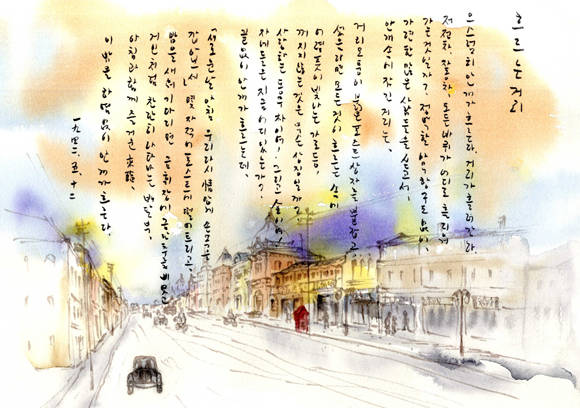 흐르는 거리
으스럼히 안개가 흐른다. 거리가 흘러간다.
저 전차, 자동차, 모든 바퀴가 어디로 흘리워
가는 것일까? 정박할 아무 항구도 없이,
가련한 많은 사람들을 싣고서,
안개 속에 잠긴 거리는,
거리 모퉁이 붉은 포스트 상자를 붙잡고,
섰을라면 모든 것이 흐르는 속에
어렴풋이 빛나는 가로등,
꺼지지 않는 것은 무슨 상징일까?
사랑하는 동무 그리고
자네들은 지금 어디 있는가?
끝없이 안개가 흐르는데,
「새로운 날 아침 우리 다시 情답게 손목을
잡어 보세」 몇 자 적어 포스트 떨어트리고,
밤을 새워 기다리면 금휘장에 금단추를 삐었고
거인처럼 찬란히 나타나는 배달부,
아침과 함께 즐거운 來臨,
이 밤을 하염없이 안개가 흐른다.
一九四二. 五. 十二